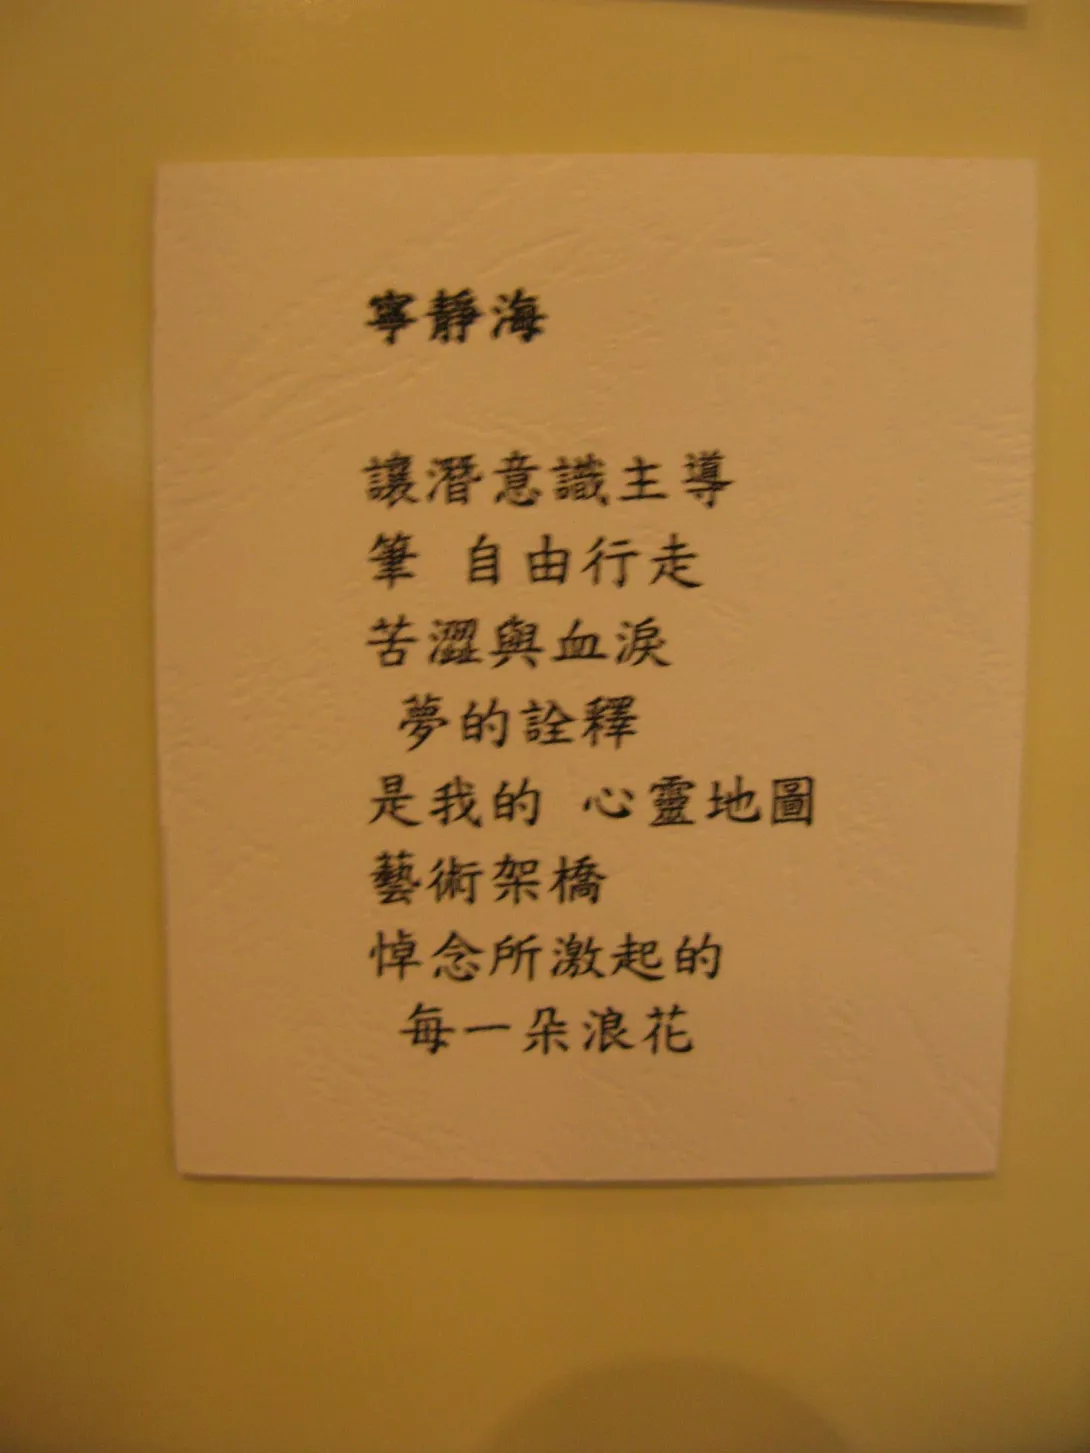 寧靜海
讓潛意識主導
筆 自由行走
苦澀與血淚
夢的詮釋
是我的 心靈地圖
藝術架橋
悼念所激起的
每一朵浪花